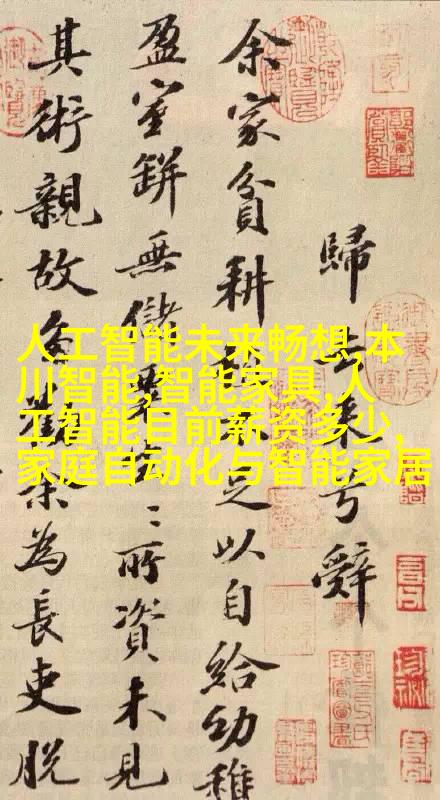 歸去來兮辭
余家貧耕植不足以自給幼稚
盈室缾無儲粟生〻所資未見
其術親故多勸余為長吏脫
人工智能未来畅想,本
川智能,智能家具,人
工智能目前薪资多少,
家庭自动化与智能家居